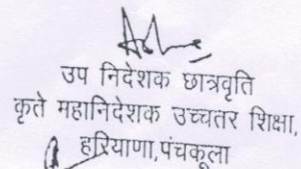 उप निदेशक छात्रवृति
कृते महानिदेशक उच्चतर शिक्षा,
हरियाणा,पंचकूला